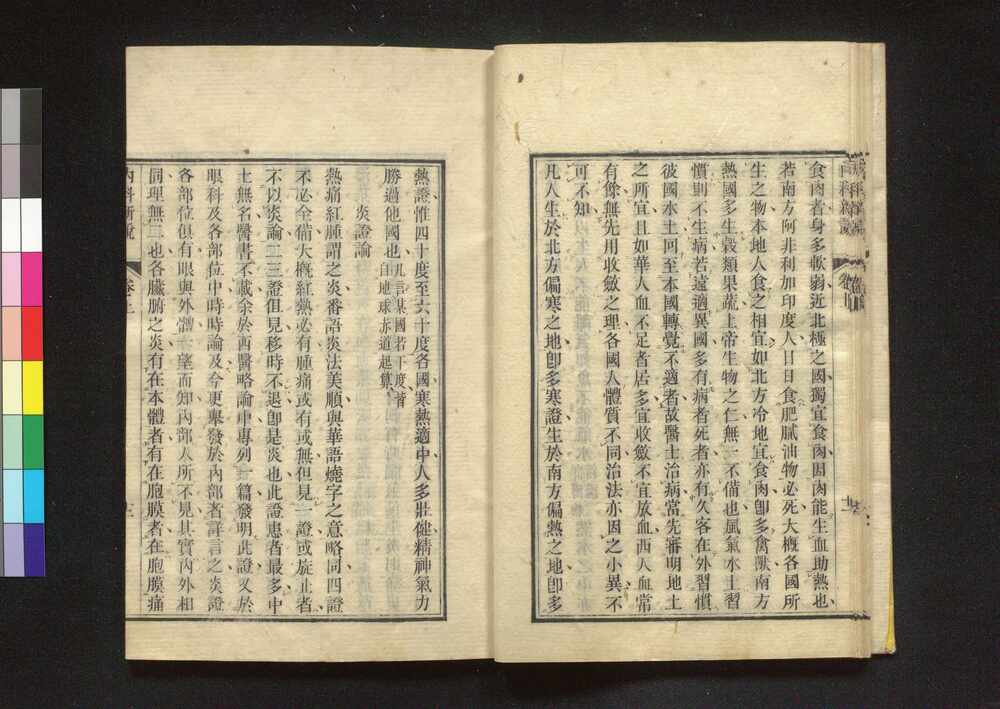 食肉者身多軟弱近北極之國獨宜食肉因肉能生血助熱也
若南方阿非利加印度人日日食肥膩油物必死大槪各國所
生之物本地人食之相宜如北方冷地宜食肉卽多禽獸南方
熱國多生穀類果蔬上帝生物之仁無一不備也風氣水土習
慣則不生病若遠適異國多有病者死者亦有久客在外習慣
彼國水土回至本國轉覺不適者故醫士治病當先審明地土
之所宜且如華人血不足者居多宜收斂不宜放血西人血常
有餘無先用收斂之理各國人體質不同治法亦因之小異不
可不知
凡人生於北方偏寒之地卽多寒證生於南方偏熱之地卽多
熱證惟四十度至六十度各國寒熱適中人多壯健精神氣力
勝過他國也凡言某國若干度者自地球赤道起算
炎證論
熱痛紅腫謂之炎番語炎法美順與華語燒字之意略同四證
不必全備大槪紅熱必有腫痛或有或無但見一證或旋止者
不以炎論二三證但見移時不退卽是炎也此證患者最多中
土無名醫書不載余於西醫略論中專列一篇發明此證又於
眼科及各部位中時時論及今更舉發於內部者詳言之炎證
各部位俱有眼與外體一望而知內部人所不見其實內外相
同理無二也各臟腑之炎有在本體者有在胞膜者在胞膜痛
內科新說